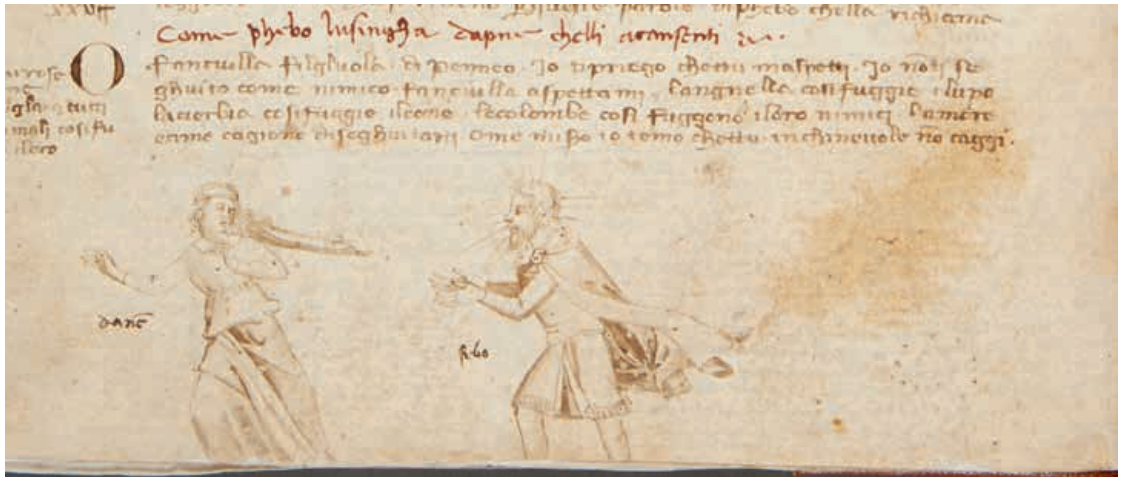 XXVII
parole di phebo chella richiama
Come phebo lusingha dapne chelli aconsenti
O fanciulla figluola di Penneo. Io ti priego chettu maspetti. Io non ti se
ghuito come nimico. fanciulla aspettami. langnella cosi fuggie ilupo
lacierbia cosi fuggie ileone. lecolombe cosi fuggono iloro nimici. lamore
cagione diseghuitarti. Ome misero io temo chettu inchinevole no caggi.
tutti
mali cosi fu
iloro
dane
febo